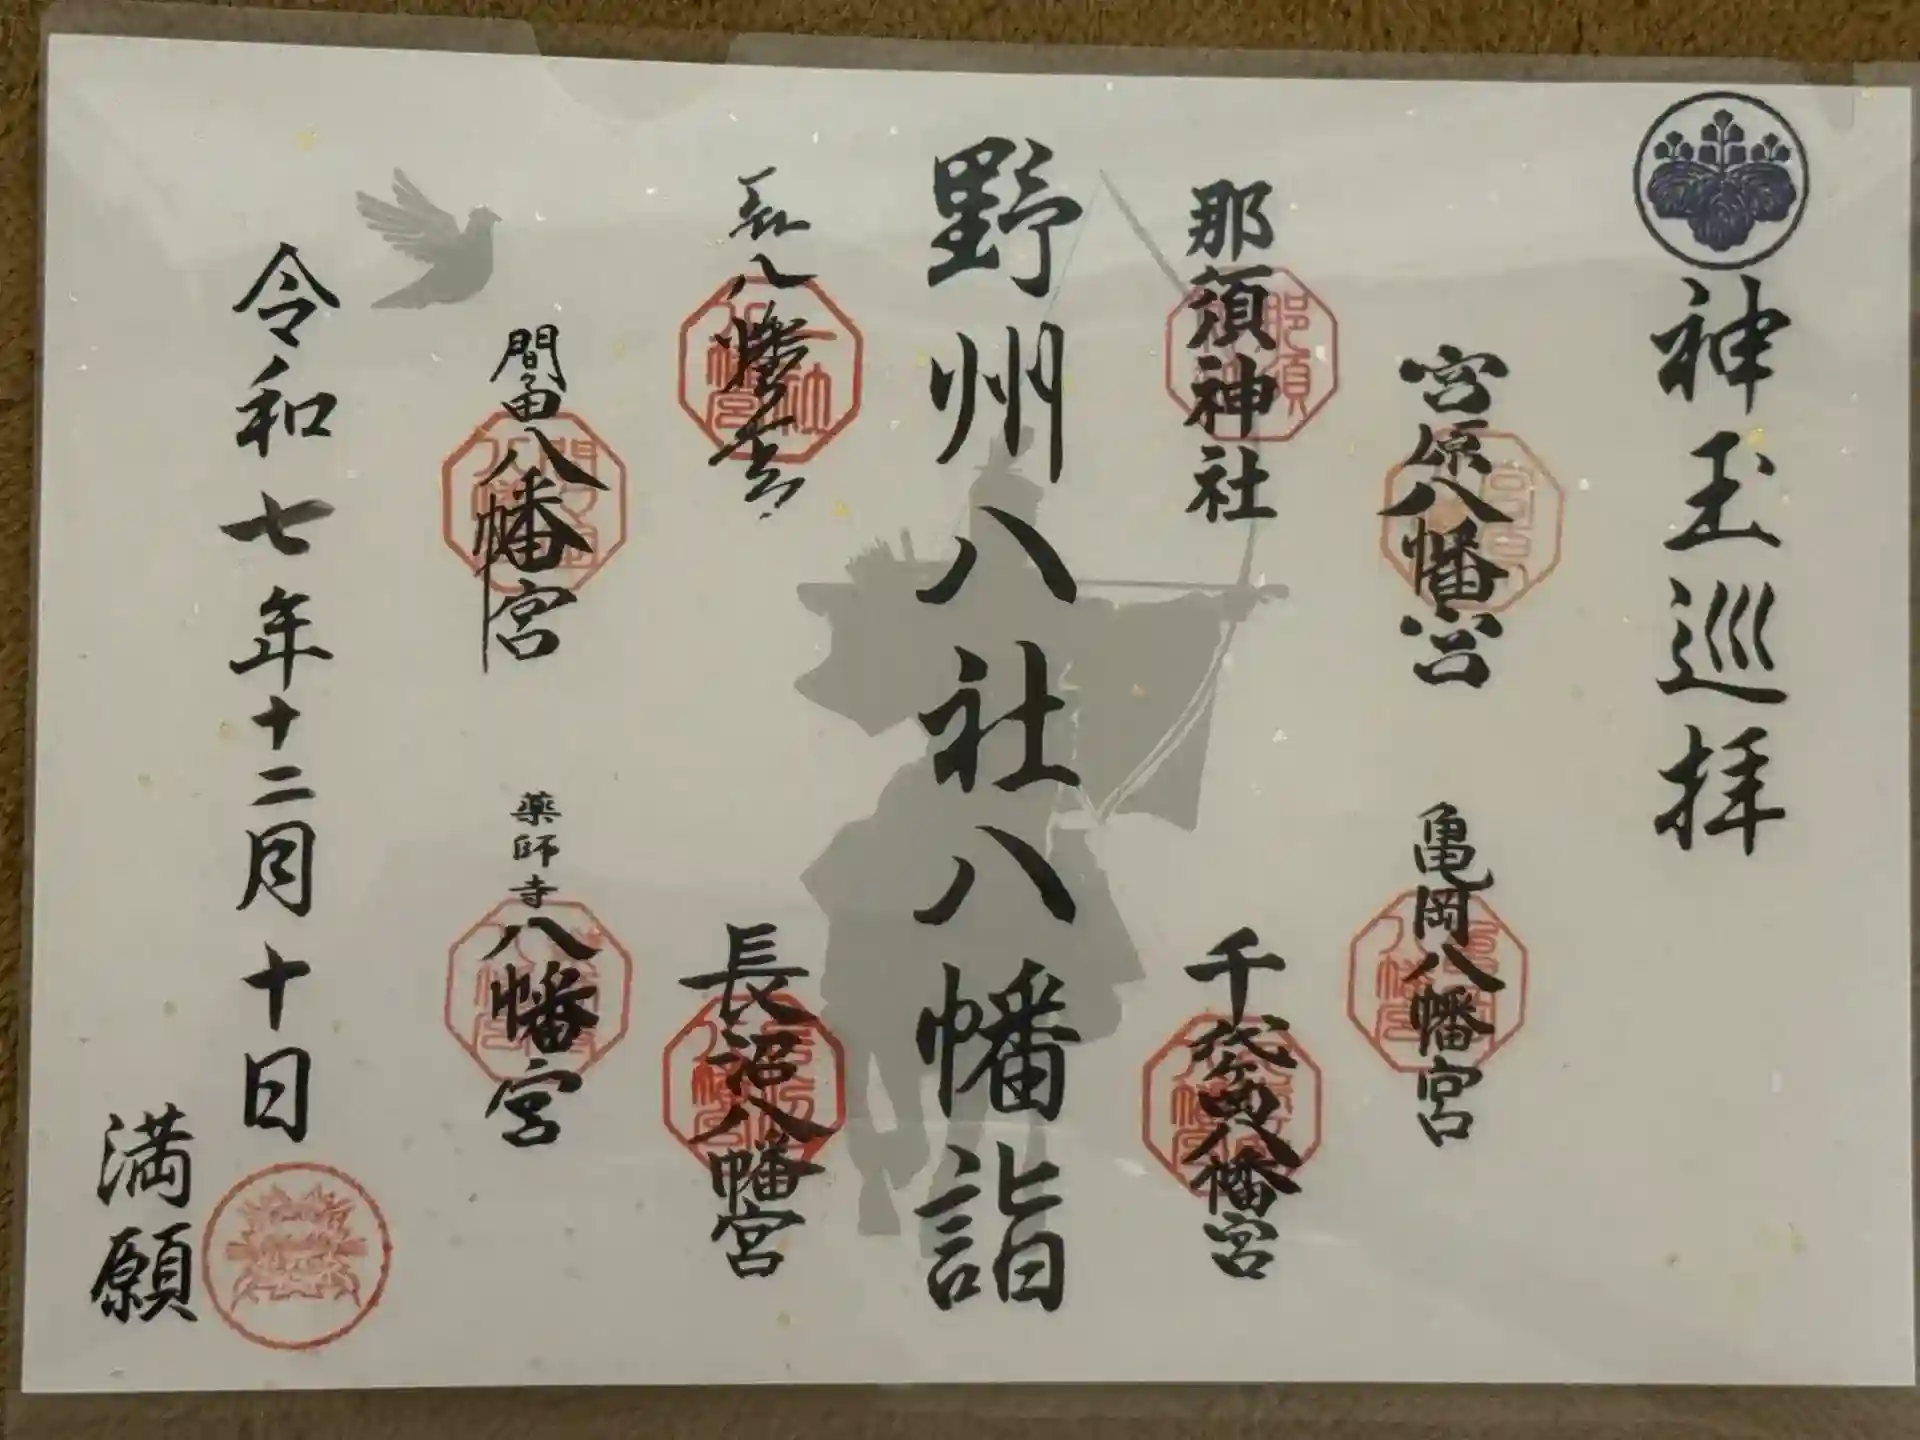 神玉巡拝
宮原八幡宮
亀岡八幡宮
那須神社
千代ヶ岡八幡宮
野州八社八幡詣
八幡宮
長沼八幡宮
間々田八幡宮
薬師寺
八幡宮
令和七年十二月十日
満願